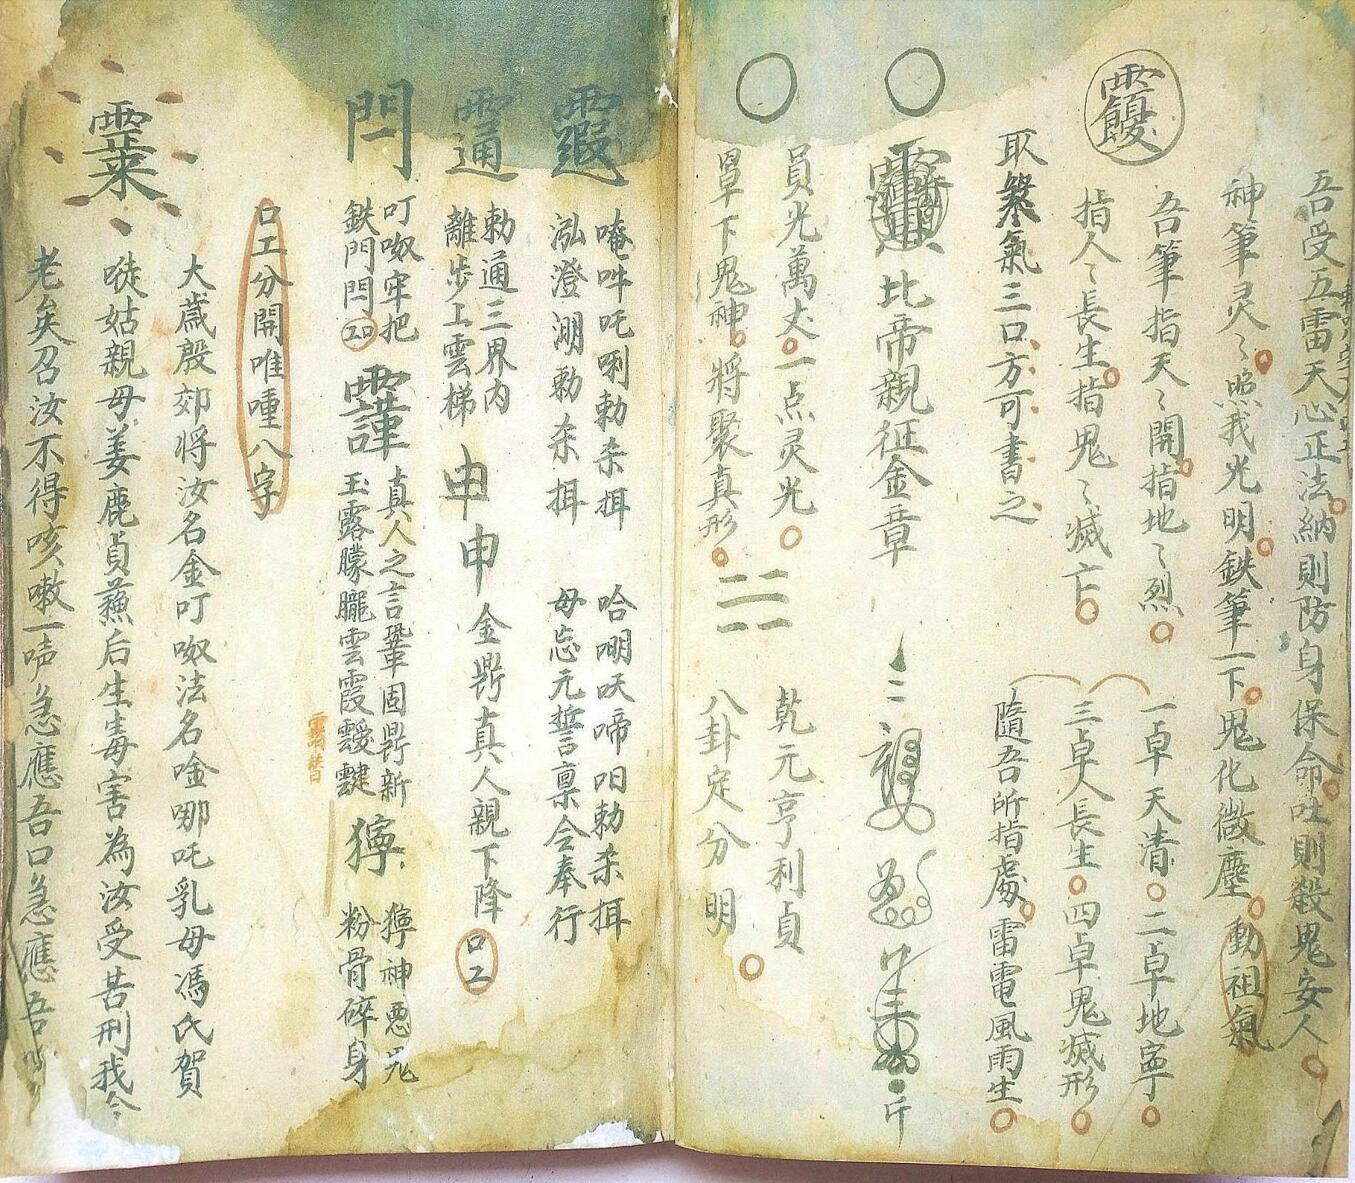 吾受五雷天心正法納則防身保命吐則殺鬼安人
神筆灵々照我光明鉄筆一下鬼化微塵動祖氣
吾筆指天々開指地々烈
指人々長生指鬼々滅亡
一卓天清二卓地寧
三卓人長生四卓鬼滅形
隨吾所指處雷電風雨生
取氣三口方可書之
比帝親征金章
員光萬丈一点灵光
罩下鬼神將聚真形
乾元亨利貞
八卦定分明
唵吽吒唎勅杀揖
泓澄淜勅杀揖
哈㖟吠啼呾勅杀揖
毋忘元誓稟令奉行
勅通三界内
離步工雲梯
申
申
金闕真人親下降
口工
閂
叮呶牢把
鉄門閂
真人之言鞏固鼎新
玉露朦朧雲霞靉靆
獰
獰神惡咒
粉骨碎身
口工分開唯喠八字
大歲殷郊将汝名金叮呶法名唫哪吒乳母馮氏賀
唴姑親母姜鹿貞蘓后生毒害為汝受苦刑我今
老矣召汝不得咳嗽一声急應吾口急應吾